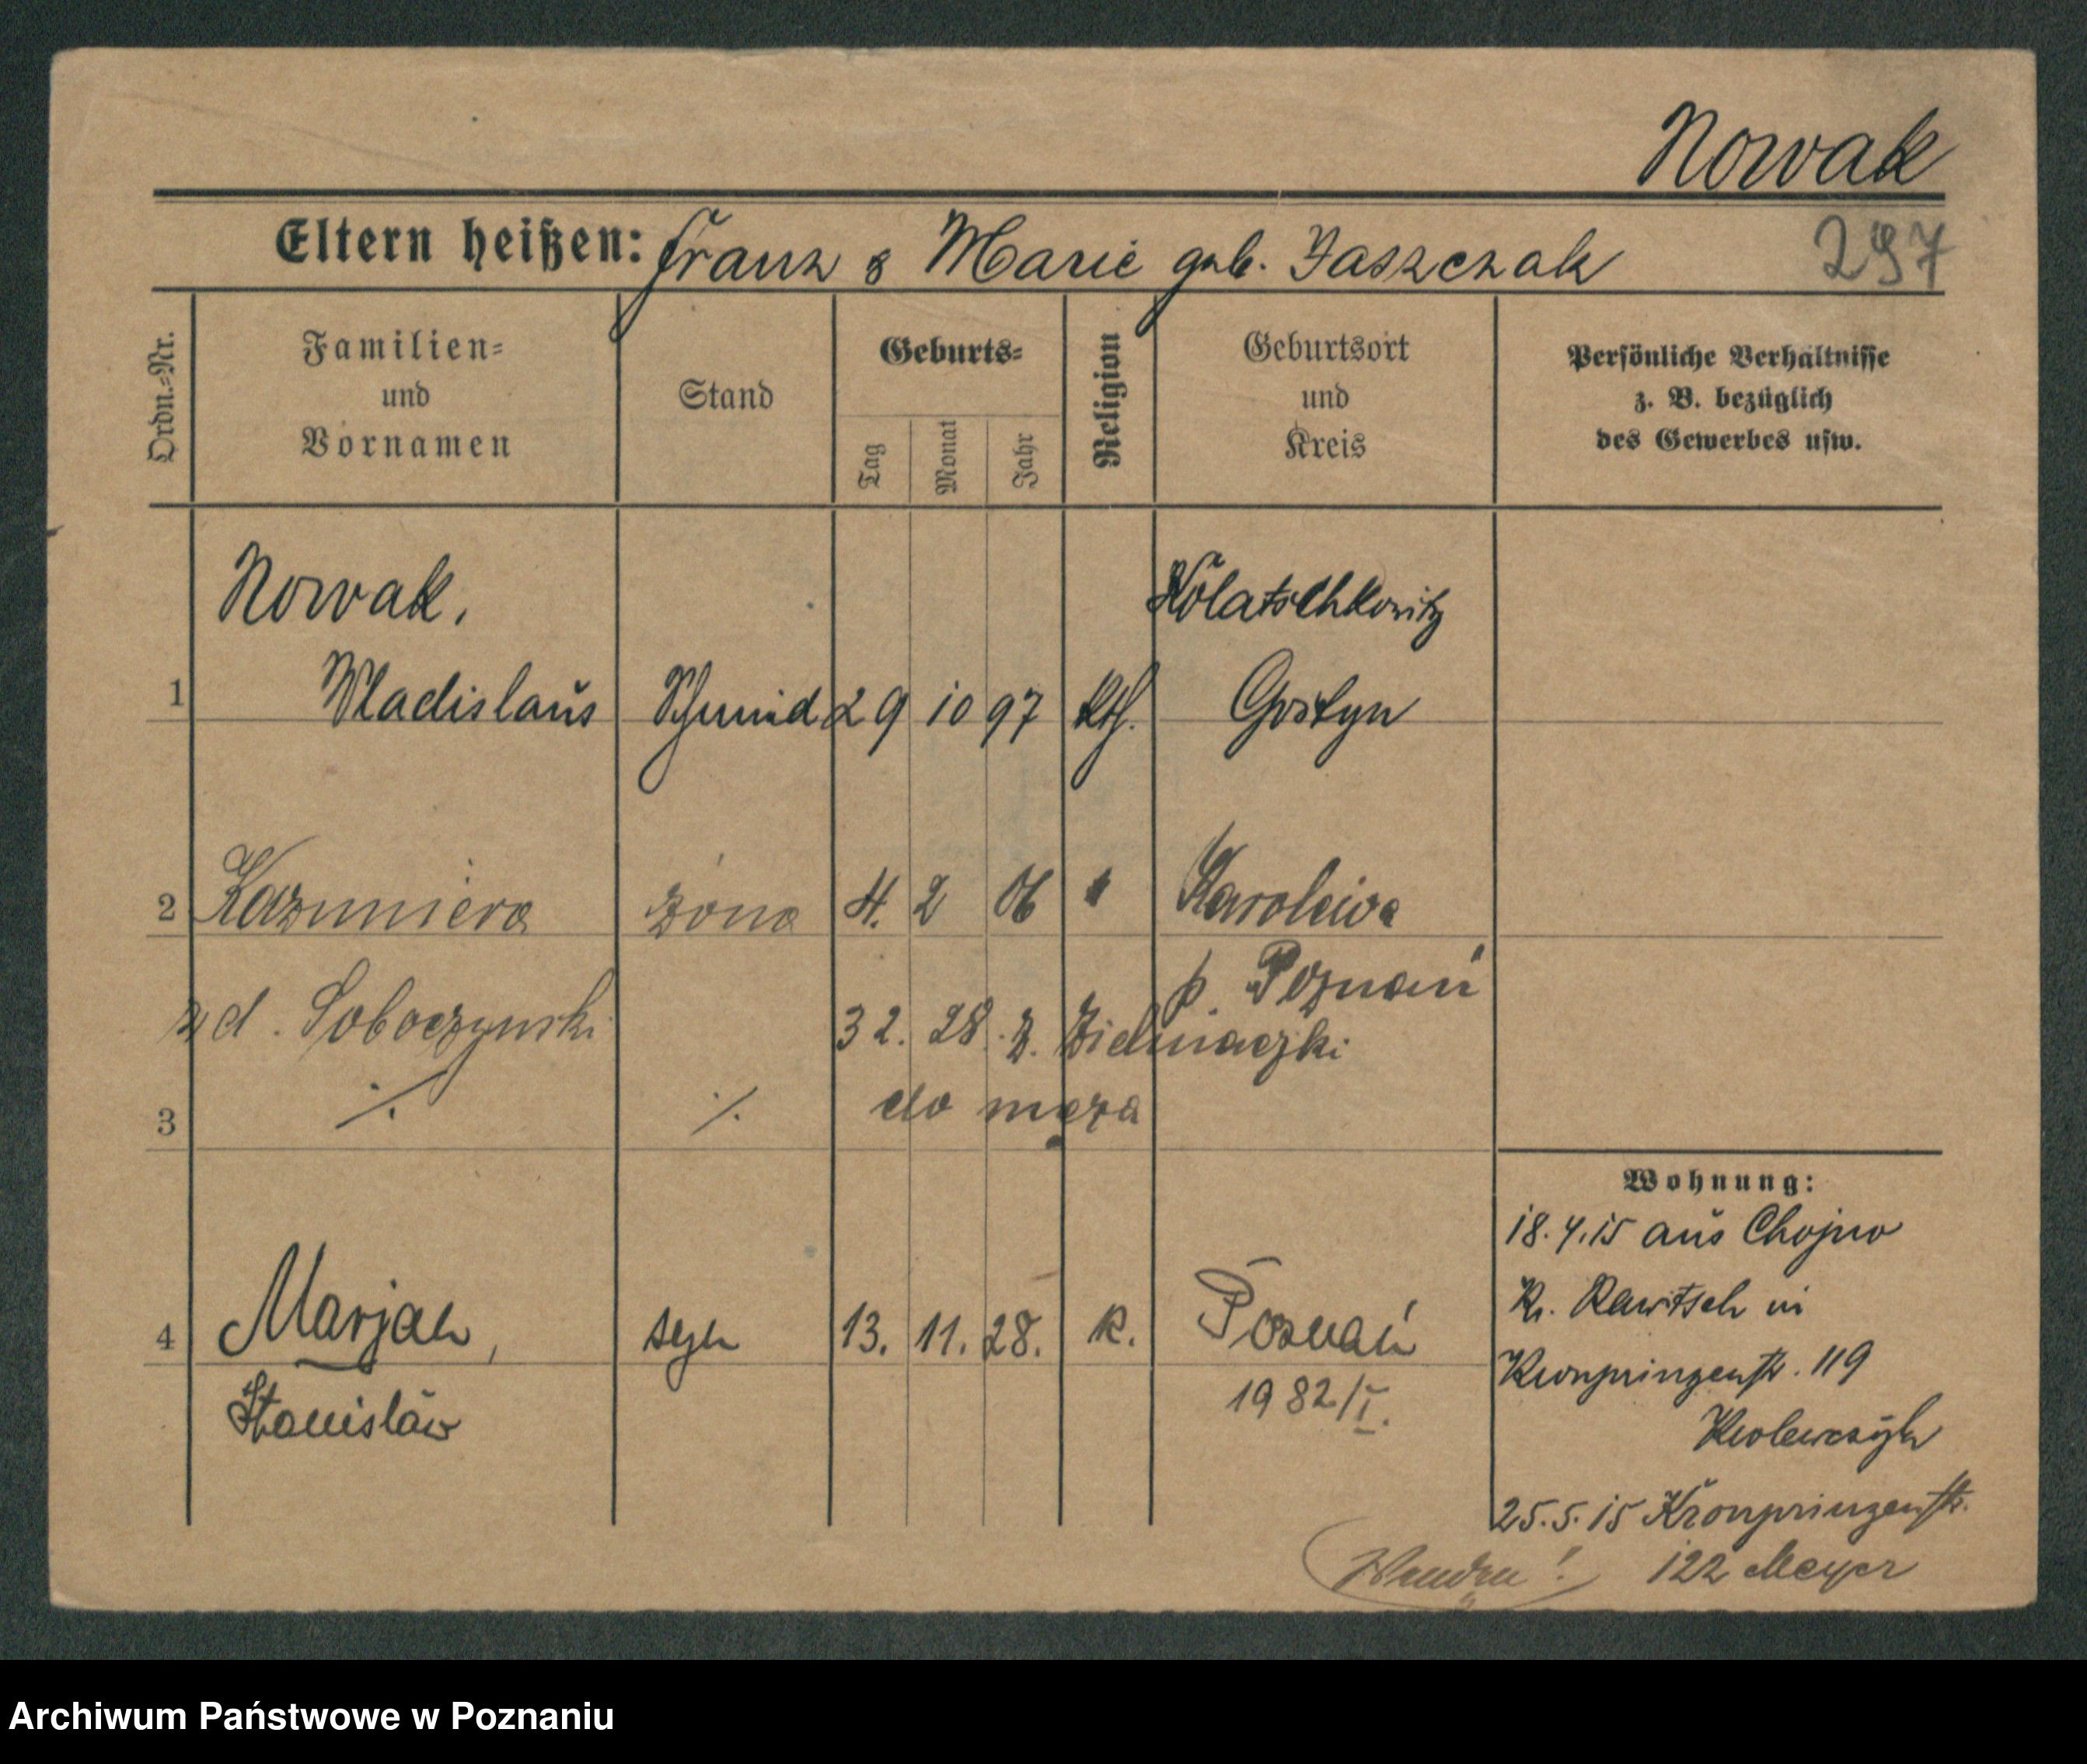 Nowak
Eltern heißen: Franz & Marie geb. Jaszczak
297
Ordn.-Nr.
Familien-
und
Vornamen
Stand
Geburts-
Tag
Monat
Jahr
Religion
Geburtsort
und
Kreis
Persönliche Verhältnisse
z. B. bezüglich
des Gewerbes usw.
1
Nowak,
Wladislaus
Schmied
29 10 97
kth.
Kolatschkowitz
Gostyn
2
Kazimiera
żona
4. 2 06
"
p. Poznań
zd. Soboczynski
32. 28. z.
3
·/.
·/.
do męża
4
Marjan,
Stanisław
syn
13. 11. 28.
k.
Poznań
1982/I.
Wohnung:
18.4.15 aus Chojno
Kr. Rawitsch in
Kronprinzenstr. 119
25.5.15 Kronprinzenstr.
122 Meyer
Wenden!
Archiwum Państwowe w Poznaniu